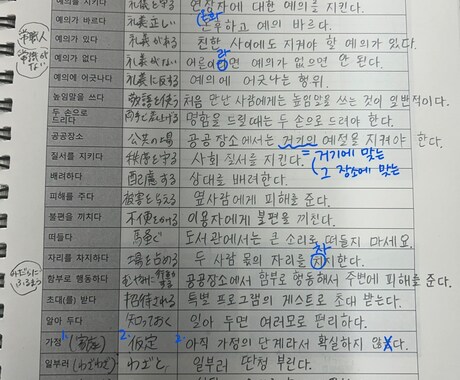 예의를 지키다 礼義を守る 연장자에 대한 예의를 지킨다.
예의가 바르다 礼義正しい 온화하고 예의 바르다.
예의가 있다 礼義がある 친한 사이에도 지켜야 할 예의가 있다.
예의가 없다 礼義がない 어른이라면 예의가 없으면 안 된다.
예의에 어긋나다 礼義に反する 예의에 어긋나는 행위.
높임말을 쓰다 敬語を使う 처음 만난 사람에게는 높임말을 쓰는 것이 일반적이다.
두 손으로 드리다 両手で差し上げる 명함을 드릴 때는 두 손으로 드려야 한다.
공공장소 公共の場 공공장소에서는 거기의 예절을 지켜야 한다.
= 거기에 맞는
그 장소에 맞는
질서를 지키다 秩序を守る 사회 질서를 지킨다.
배려하다 配慮する 상대를 배려한다.
피해를 주다 被害を与える 옆사람에게 피해를 준다.
불편을 끼치다 不便をかける 이용자에게 불편을 끼친다.
떠들다 騒ぐ 도서관에서는 큰 소리로 떠들지 마세요.
자리를 차지하다 場を占める 두 사람 몫의 자리를 차지한다.
함부로 행동하다 공공장소에서 함부로 행동해서 주변에 피해를 준다.
초대(를) 받다 招待される 특별 프로그램의 게스트로 초대 받는다.
알아 두다 知っておく 알아 두면 여러모로 편리하다.
가정 1. (家庭) 2. 仮定 2. 아직 가정의 단계라서 확실하지 않다.
일부러 (わざわざ) わざと 일부러 딴청 부린다.
常職人
常識がない